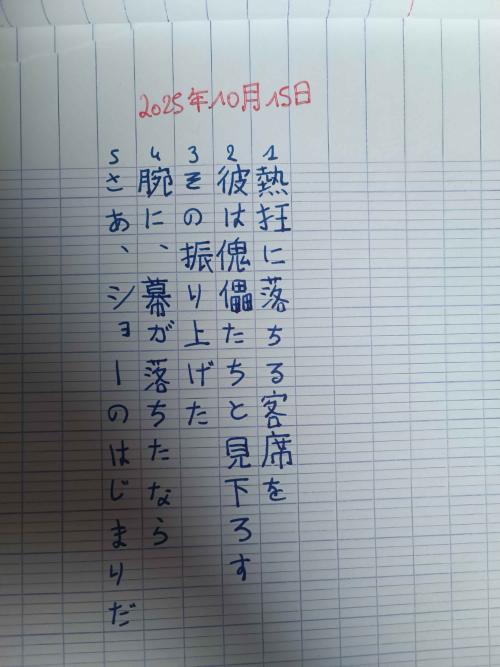 2025年10月15日
1 熱狂に落ちる客席を
2 彼は傀儡たちと見下ろす
3 その振り上げた
4 腕に、幕が落ちたなら
5 さあ、ショーのはじまりだ